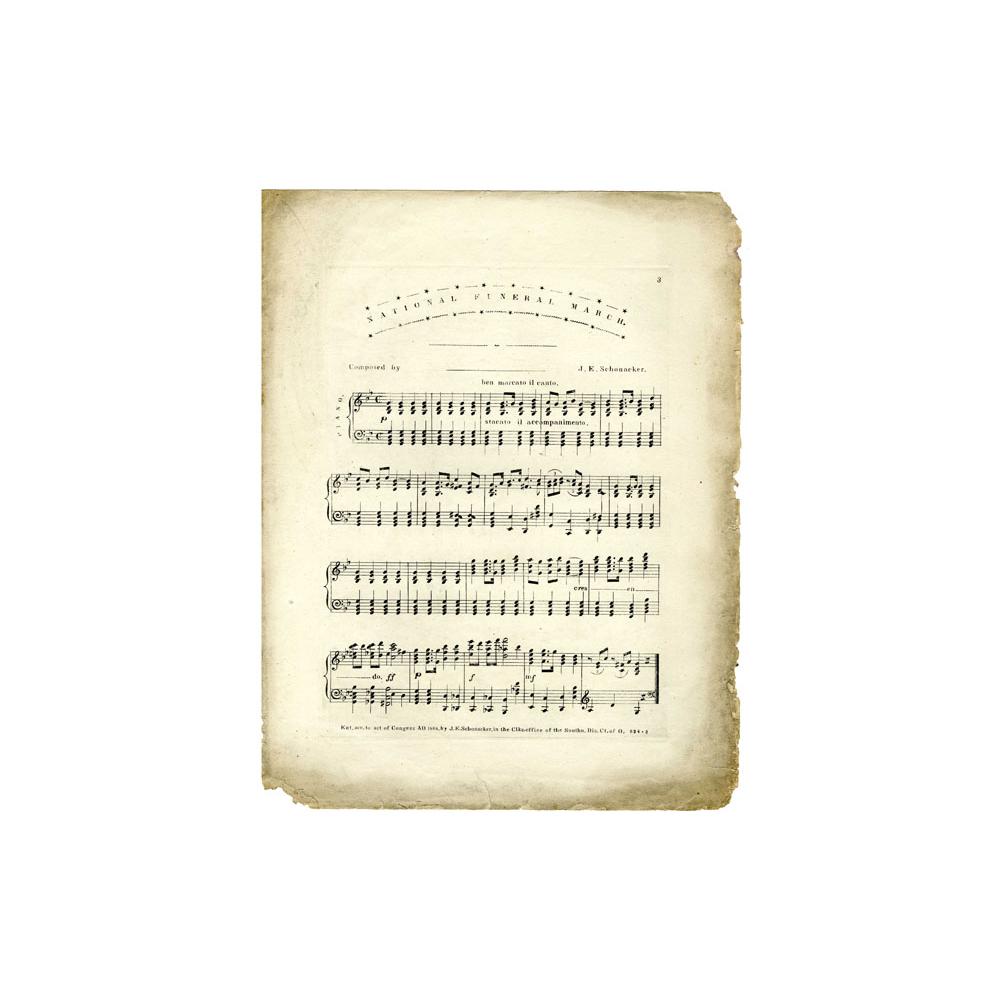 3
NATIONAL FUNERAL MARCH.
Composed by J. E. Schonacker.
ben marcato il canto.
PIANO.
p
stocato il accompanimento.
cres en
do. ff p f mf
Ent. acc. to act of Congress AD by J. E. Schonacker, in the Clks office of the Southn. Dis. Ct. of O.